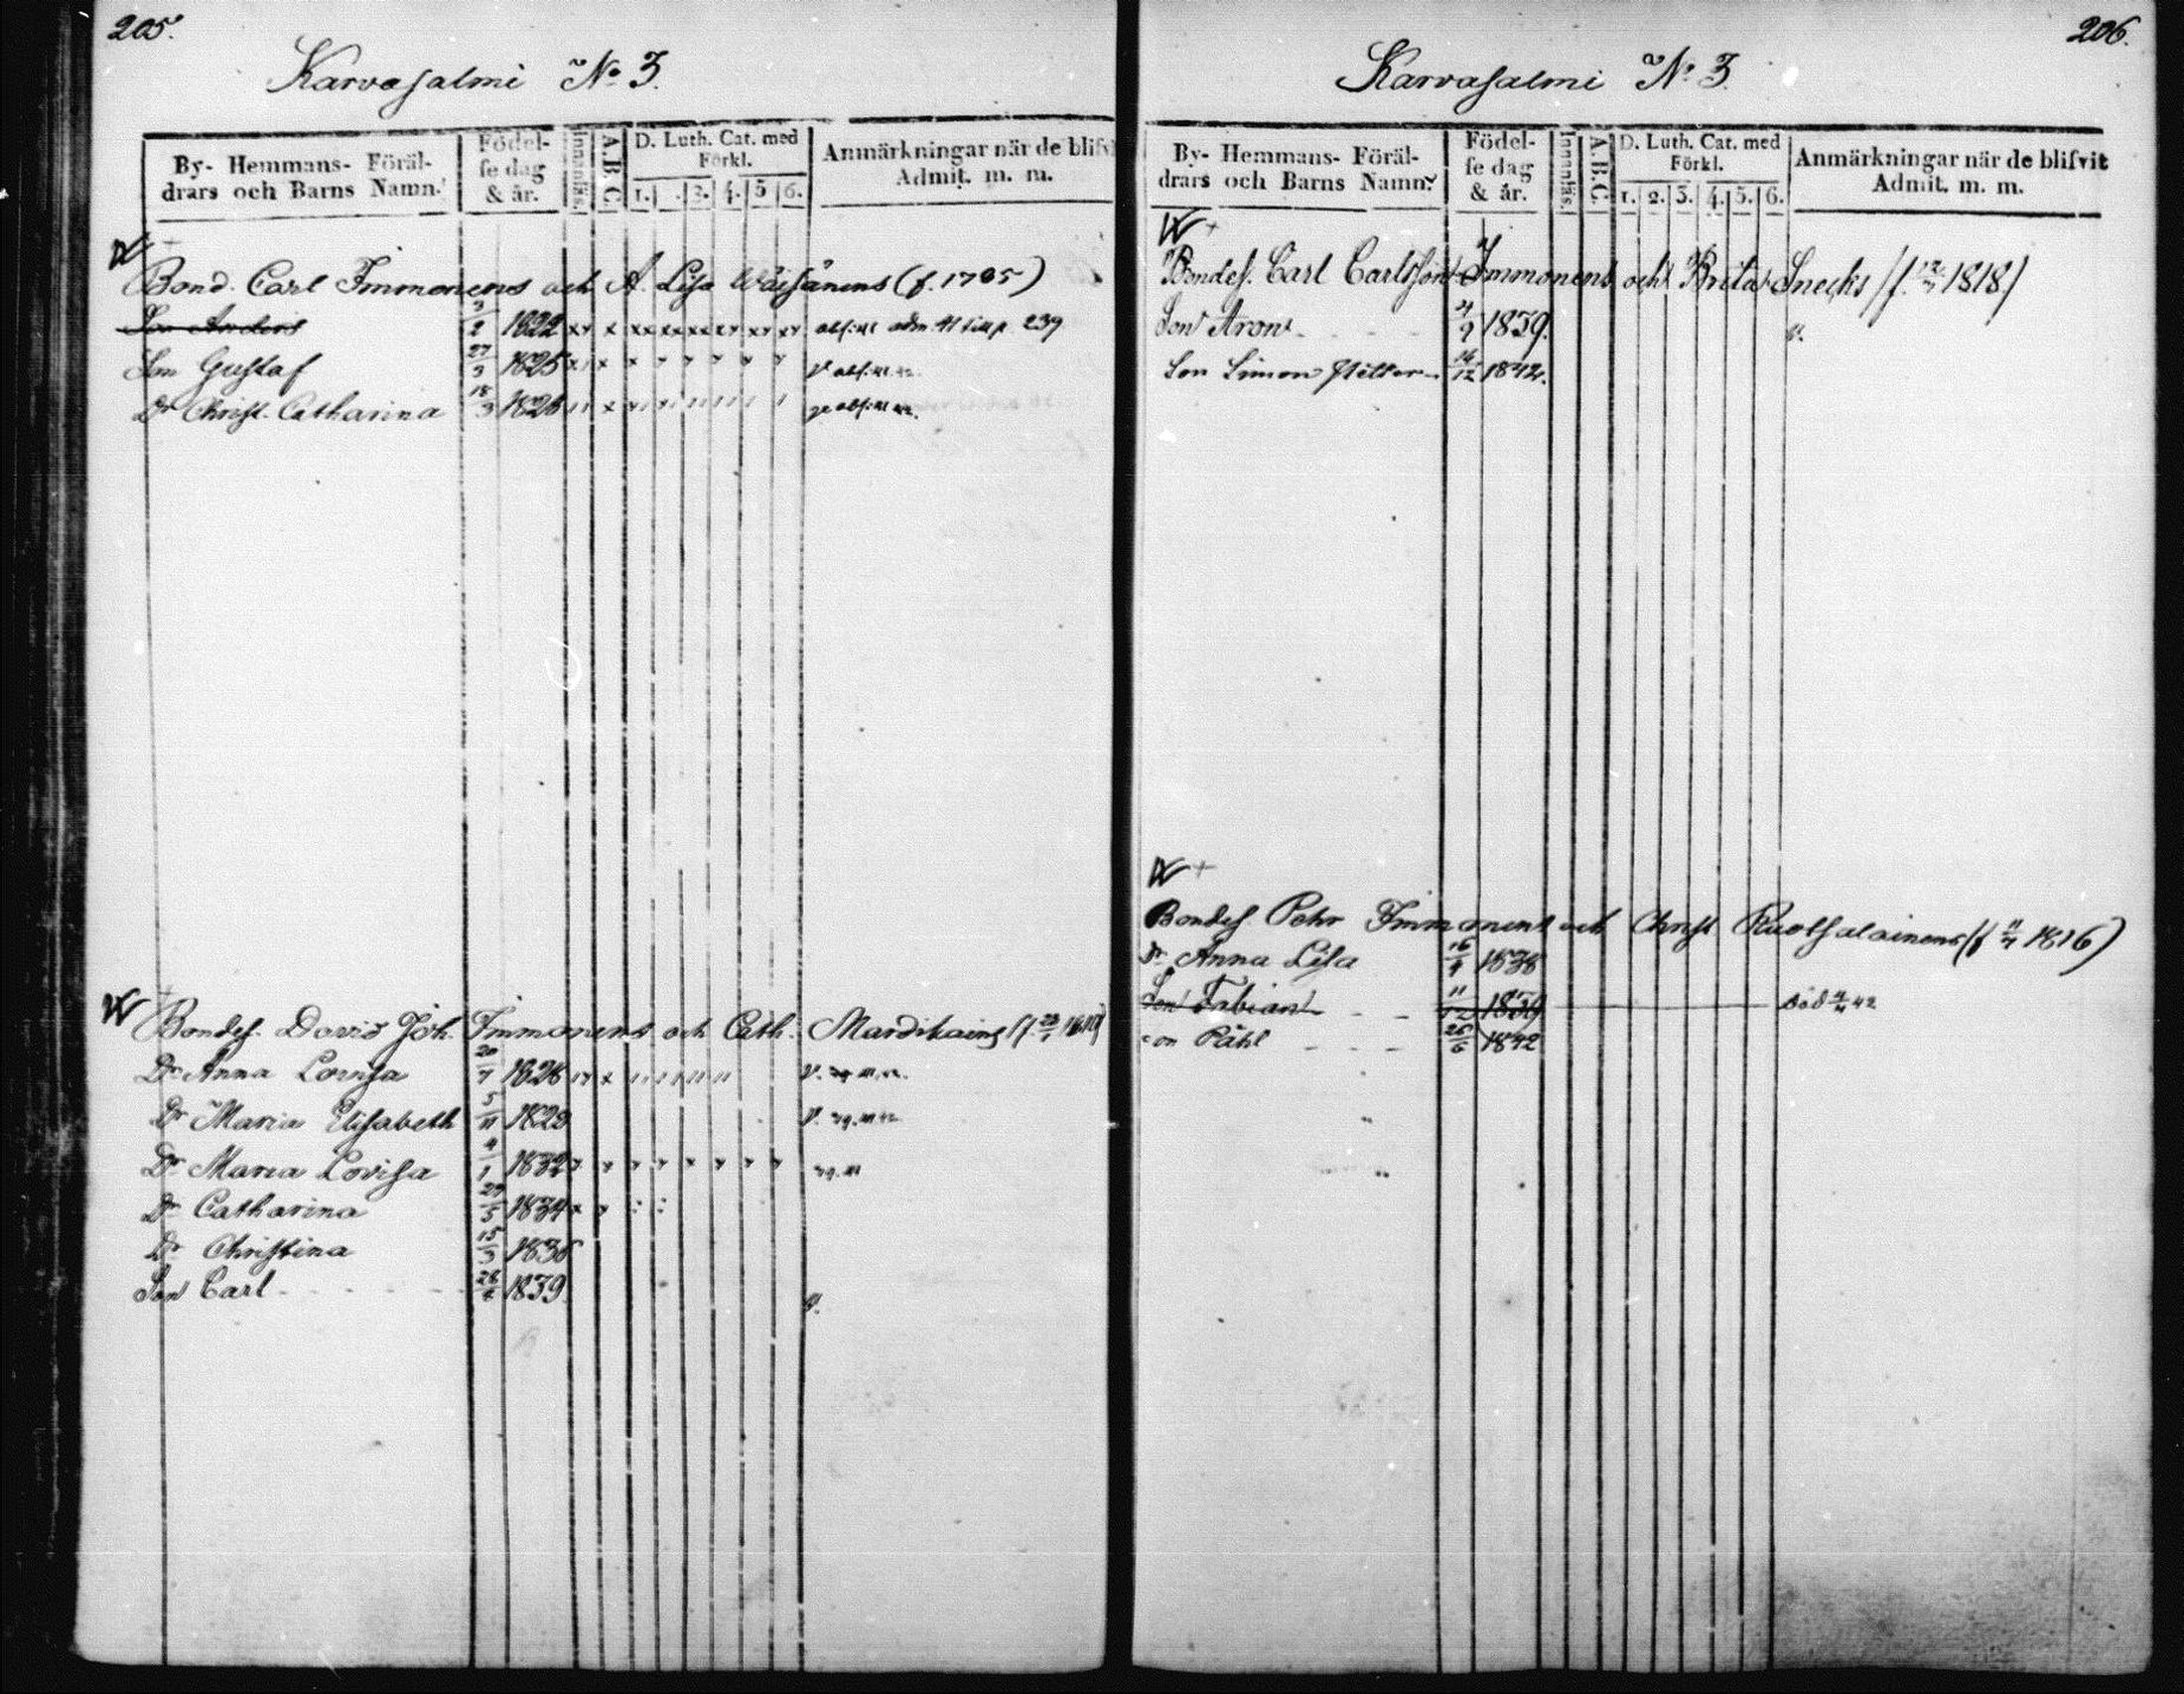 205.
Karvasalmi No 3.
By- Hemmans- Föräl-
drars och Barns Namn.
Födel-
se dag
& år.
Innanläs.
A.B.C
D. Luth. Cat. med
Förkl.
1. 3. 4. 5 6.
Anmärkningar när de blifvi
Admit. m. m.
Bond. Carl Immonens och A. Lisa Wäisänens (f. 1785)
Son Anders 3/2 1822 abs: 41 adm. 41 till p. 239
Son Gustaf 27/3 1825 abs: 41 42.
Dr Christ. Catharina 18/3 1828 abs: 41 42.
Bondes. David Joh. Immonens och Cath. Mardikains
Dr Anna Lovisa 20/7 1828
Dr Maria Elisabeth 5/11 1829
Dr Maria Lovisa 4/1 1832
Dr Catharina 29/5 1834
Dr Christina 15/3 1836
Son Carl 28/4 1839
206.
Karvasalmi No 3.
By- Hemmans- Föräl-
drars och Barns Namn.
Födel-
se dag
& år.
Innanläs.
A.B.C
D. Luth. Cat. med
Förkl.
1. 2. 3. 4. 5. 6.
Anmärkningar när de blifvit
Admit. m. m.
Bondes. Carl Carlsson Immonens och Brita Snecks (f. 1818)
Son Aron 1839.
Son Simon Petter 16/12 1842.
Bondes. Pehr Immonens och Christ Ruotsalainens (f 1816)
Dr Anna Lisa 16/4 1838
Son Fabian 11/12 1839 död 42
Son Påhl 26/6 1842